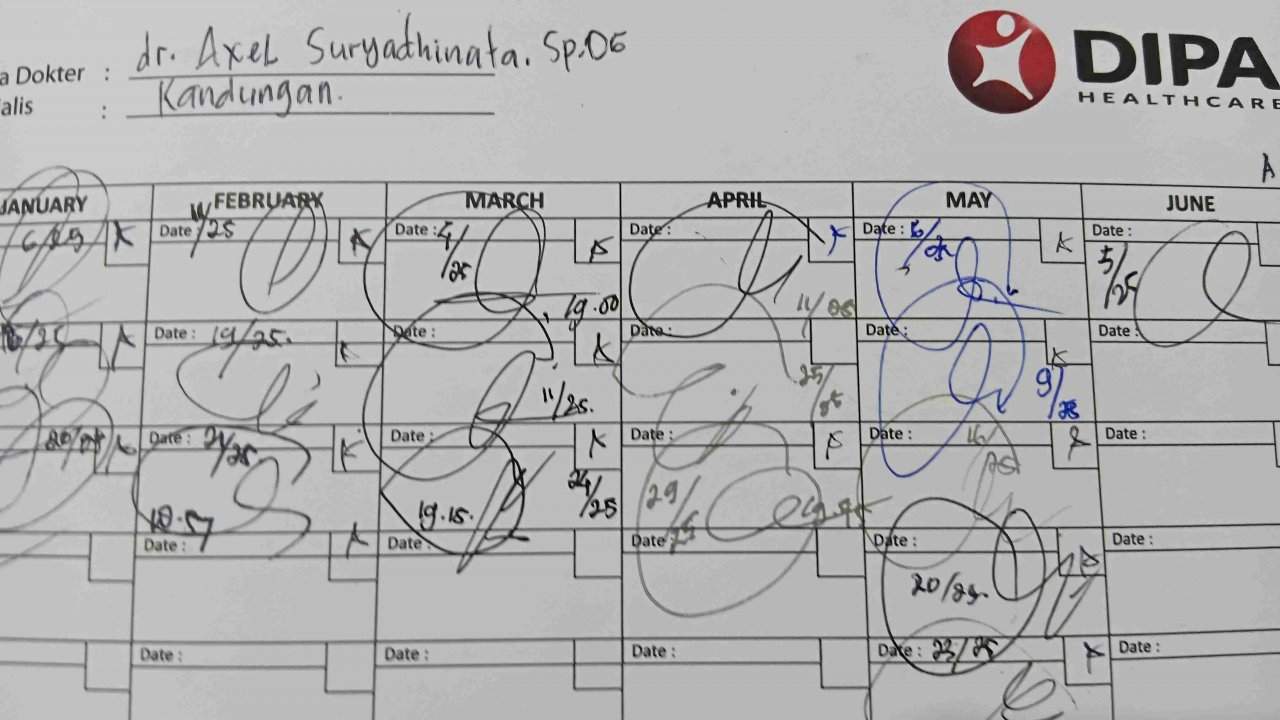 dr. Axel Suryadhinata. Sp.OG
a Dokter :
DIPA
HEALTHCARE
alis :
Kandungan.
A
JANUARY FEBRUARY MARCH APRIL MAY JUNE
6/25 A Date 11/25 A Date : 4/25 A Date : A Date : 5/25 A Date : 5/25
19.00 11/25
16/25 A Date : 19/25. A Date : A Date : Date : A Date :
11/25. 25/25 9/25
20/25 A Date : 24/25 A Date : A Date : A Date : 16/25 A Date :
18.57 19.15. 24/25 29/25
Date : A Date : Date : Date : A Date :
20/25.
Date : Date : Date : Date : 23/25 A Date :